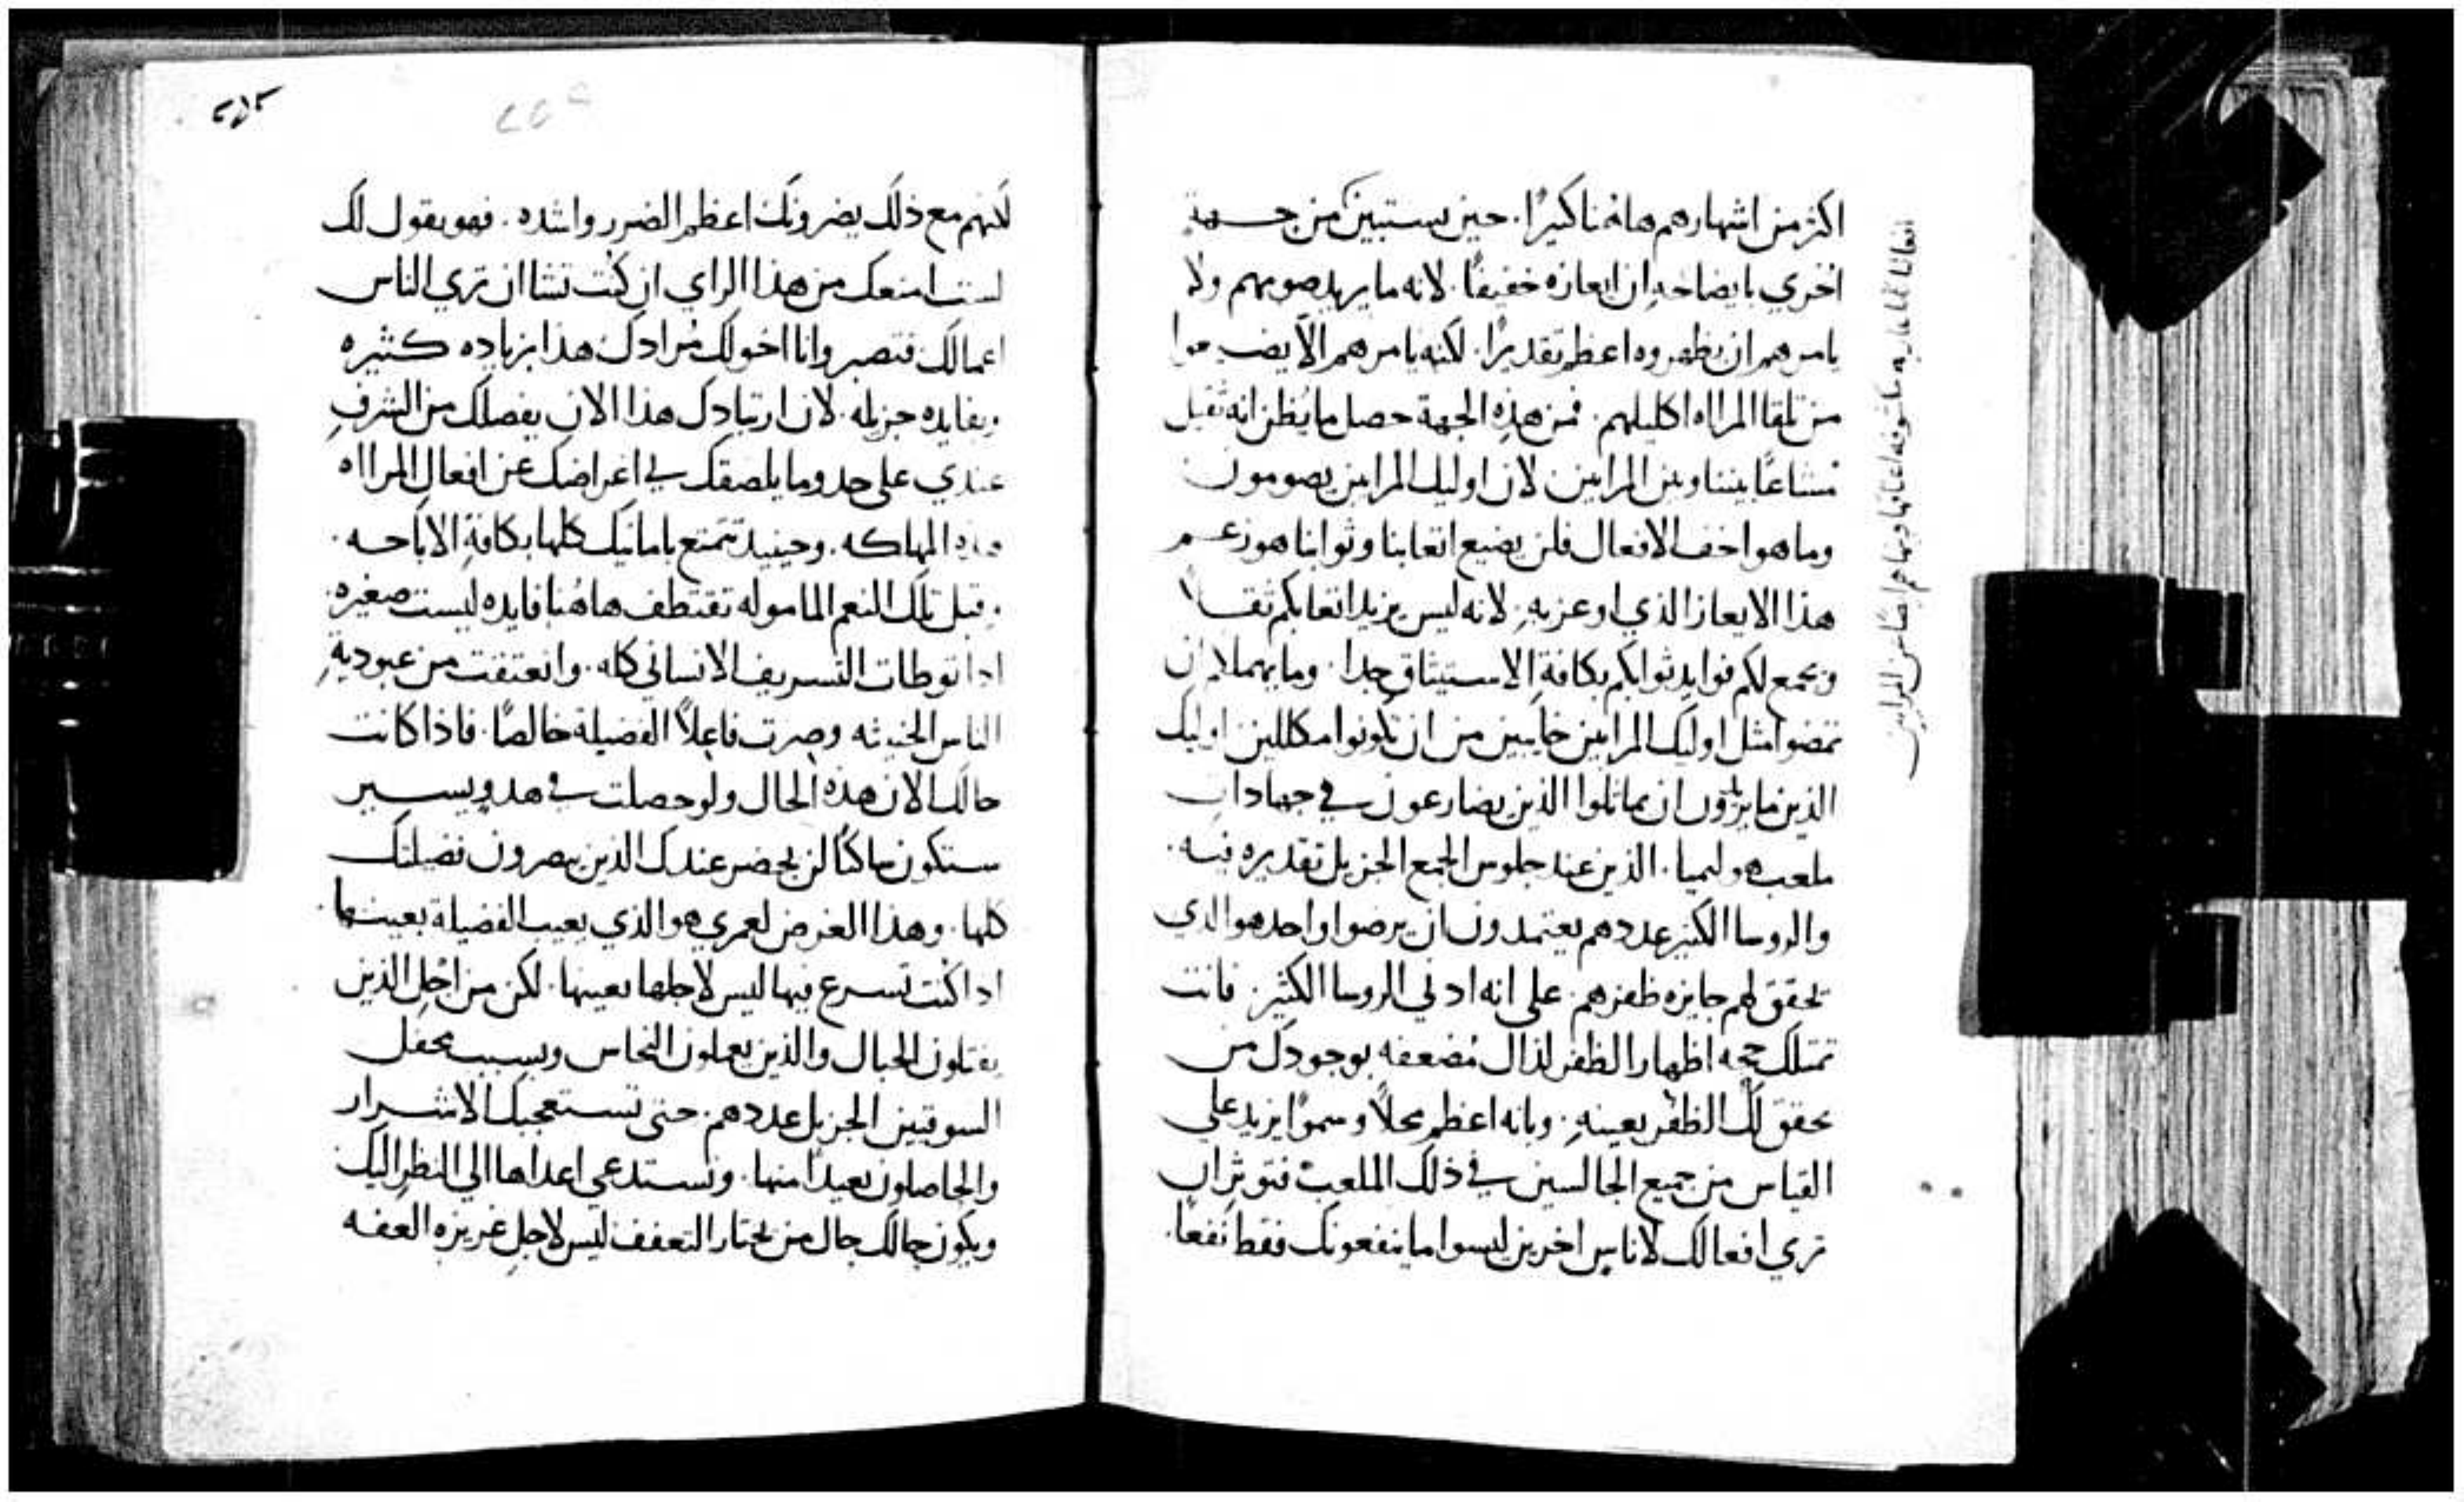 اكثر من اشهارهم هاهنا كثيرًا. حين يستبين من جهة
اخري بايضاحه ان ايعازه خفيفًا. لانه ما يريد صومهم ولا
يامرهم ان يظهروه اعظم تقديرًا. لكنه يامرهم الا يضيعوا
من تلقا المرااه اكليلهم. فمن هذه الجهة حصل ما يُظن انه ثقيل
مشاعًا بيننا وبين المرايين لان اوليك المرايين يصومون
وما هو اخف الافعال فلن يضيع اتعابنا وثوابنا هو زعم
هذا الايعاز الذي اوعز به. لانه ليس يزيد اتعابكم ثقلاً
ويجمع لكم فوايد ثوابكم بكافة الاستيثاق جدا. وما يهملكم ان
تمضوا مثل اوليك المرايين خايبين من ان تكونوا مكللين اوليك
الذين ما يرومون ان يماثلوا الذين يضارعون في جهادات
ملعب اولمبيا. الذين عند جلوس الجمع الجزيل تقديره فيه.
والروسا الكثير عددهم يعتمدون ان يرضوا واحد هو الذي
تحقق لهم جايزه ظفرهم. على انه ادني الروسا الكثير. فانت
تمتلك حجه اظهار الظفر لذاك مُضعفه بوجودك من
يحقق لك الظفر بعينه. وبانه اعظم محلاً وسموًا يزيد على
القياس من جميع الجالسين في ذلك الملعب فتوثر ان
تري افعالك لاناس اخرين ليسوا ما ينفعونك فقط نفعًا.
اتعابنا
ايضًا من المرايين
٢٥٢
لكنهم مع ذلك يضرونك اعظم الضرر واشده. فهو يقول لك
لست امنعك من هذا الراي ان كنت تشا ان تري الناس
اعمالك فتصبر وانا اخولك مُرادك هذا بزياده كثيره
وبفايده جزيله. لان ارتيادك هذا الان يفصلك من الشرف
عندي على حد وما يلصقك بي اعراضك عن افعال المرااه
هذه المهلكه. وحينيد تتمتع بامانيك كلها بكافة الاباحه.
وقبل تلك النعم الماموله تقتطف هاهُنا فايده ليست صغيره.
اذا توطات التشريف الانساني كله. وانعتقت من عبودية
الناس الخبيثه وصرت فاعلاً الفضيلة خالصًا. فاذا كانت
حالك الان هذه الحال ولو حصلت في هدو يسير
ستكون ساكنًا لن يحضر عندك الذين يبصرون فضيلتك
كلها. وهذا الغرض لعمري هو الذي يعيب الفضيلة بعينها.
اذا كنت تسرع فيها ليس لاجلها بعينها. لكن من اجل الذين
يفتلون الحبال والذين يعملون النحاس وبسبب محفل
السوقيين الجزيل عددهم. حتى تستعجبك الاشرار
والحاصلون بعيدًا منها. وتستدعي اعداها الي النظر اليك
ويكون حالك حال من يختار التعفف ليس لاجل غريزه العفه